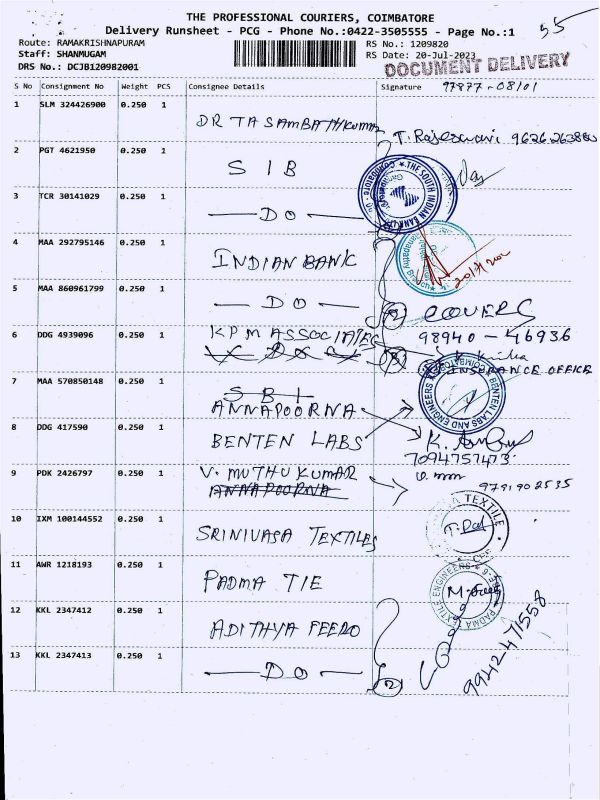 THE PROFESSIONAL COURIERS, COIMBATORE
55
Delivery Runsheet - PCG - Phone No.:0422-3505555 - Page No.:1
Route: RAMAKRISHNAPURAM
RS No.: 1209820
Staff: SHANMUGAM
RS Date: 20-Jul-2023
DRS No.: DCJB120982001
DOCUMENT DELIVERY
S No Consignment No Weight PCS Consignee Details Signature 97877-08101
1 SLM 324426900 0.250 1
DR TA SAMBATHKUMAR
T. Rajeswari
2 PGT 4621950 0.250 1
SIB
THE SOUTH INDIAN BANK
3 TCR 30141029 0.250 1
DO
4 MAA 292795146 0.250 1
INDIAN BANK
5 MAA 860961799 0.250 1
DO
(2) COVERS
6 DDG 4939096 0.250 1
KPM ASSOCIATES
98940-46936
INSURANCE OFFICE
7 MAA 570850148 0.250 1
SBI
ANNAPOORNA
BENTEN LABS AND ENGINEERS
8 DDG 417590 0.250 1
BENTEN LABS
7094757473
9 PDK 2426797 0.250 1
V. MUTHU KUMAR
ANNAPOORNA
9791902535
10 IXM 100144552 0.250 1
SRINIVASA TEXTILES
TEXTILE
11 AWR 1218193 0.250 1
PADMA TIE
PADMA TEXTILE ENGINEERS
12 KKL 2347412 0.250 1
ADITHYA FEERO
9942471558
13 KKL 2347413 0.250 1
DO
(2)